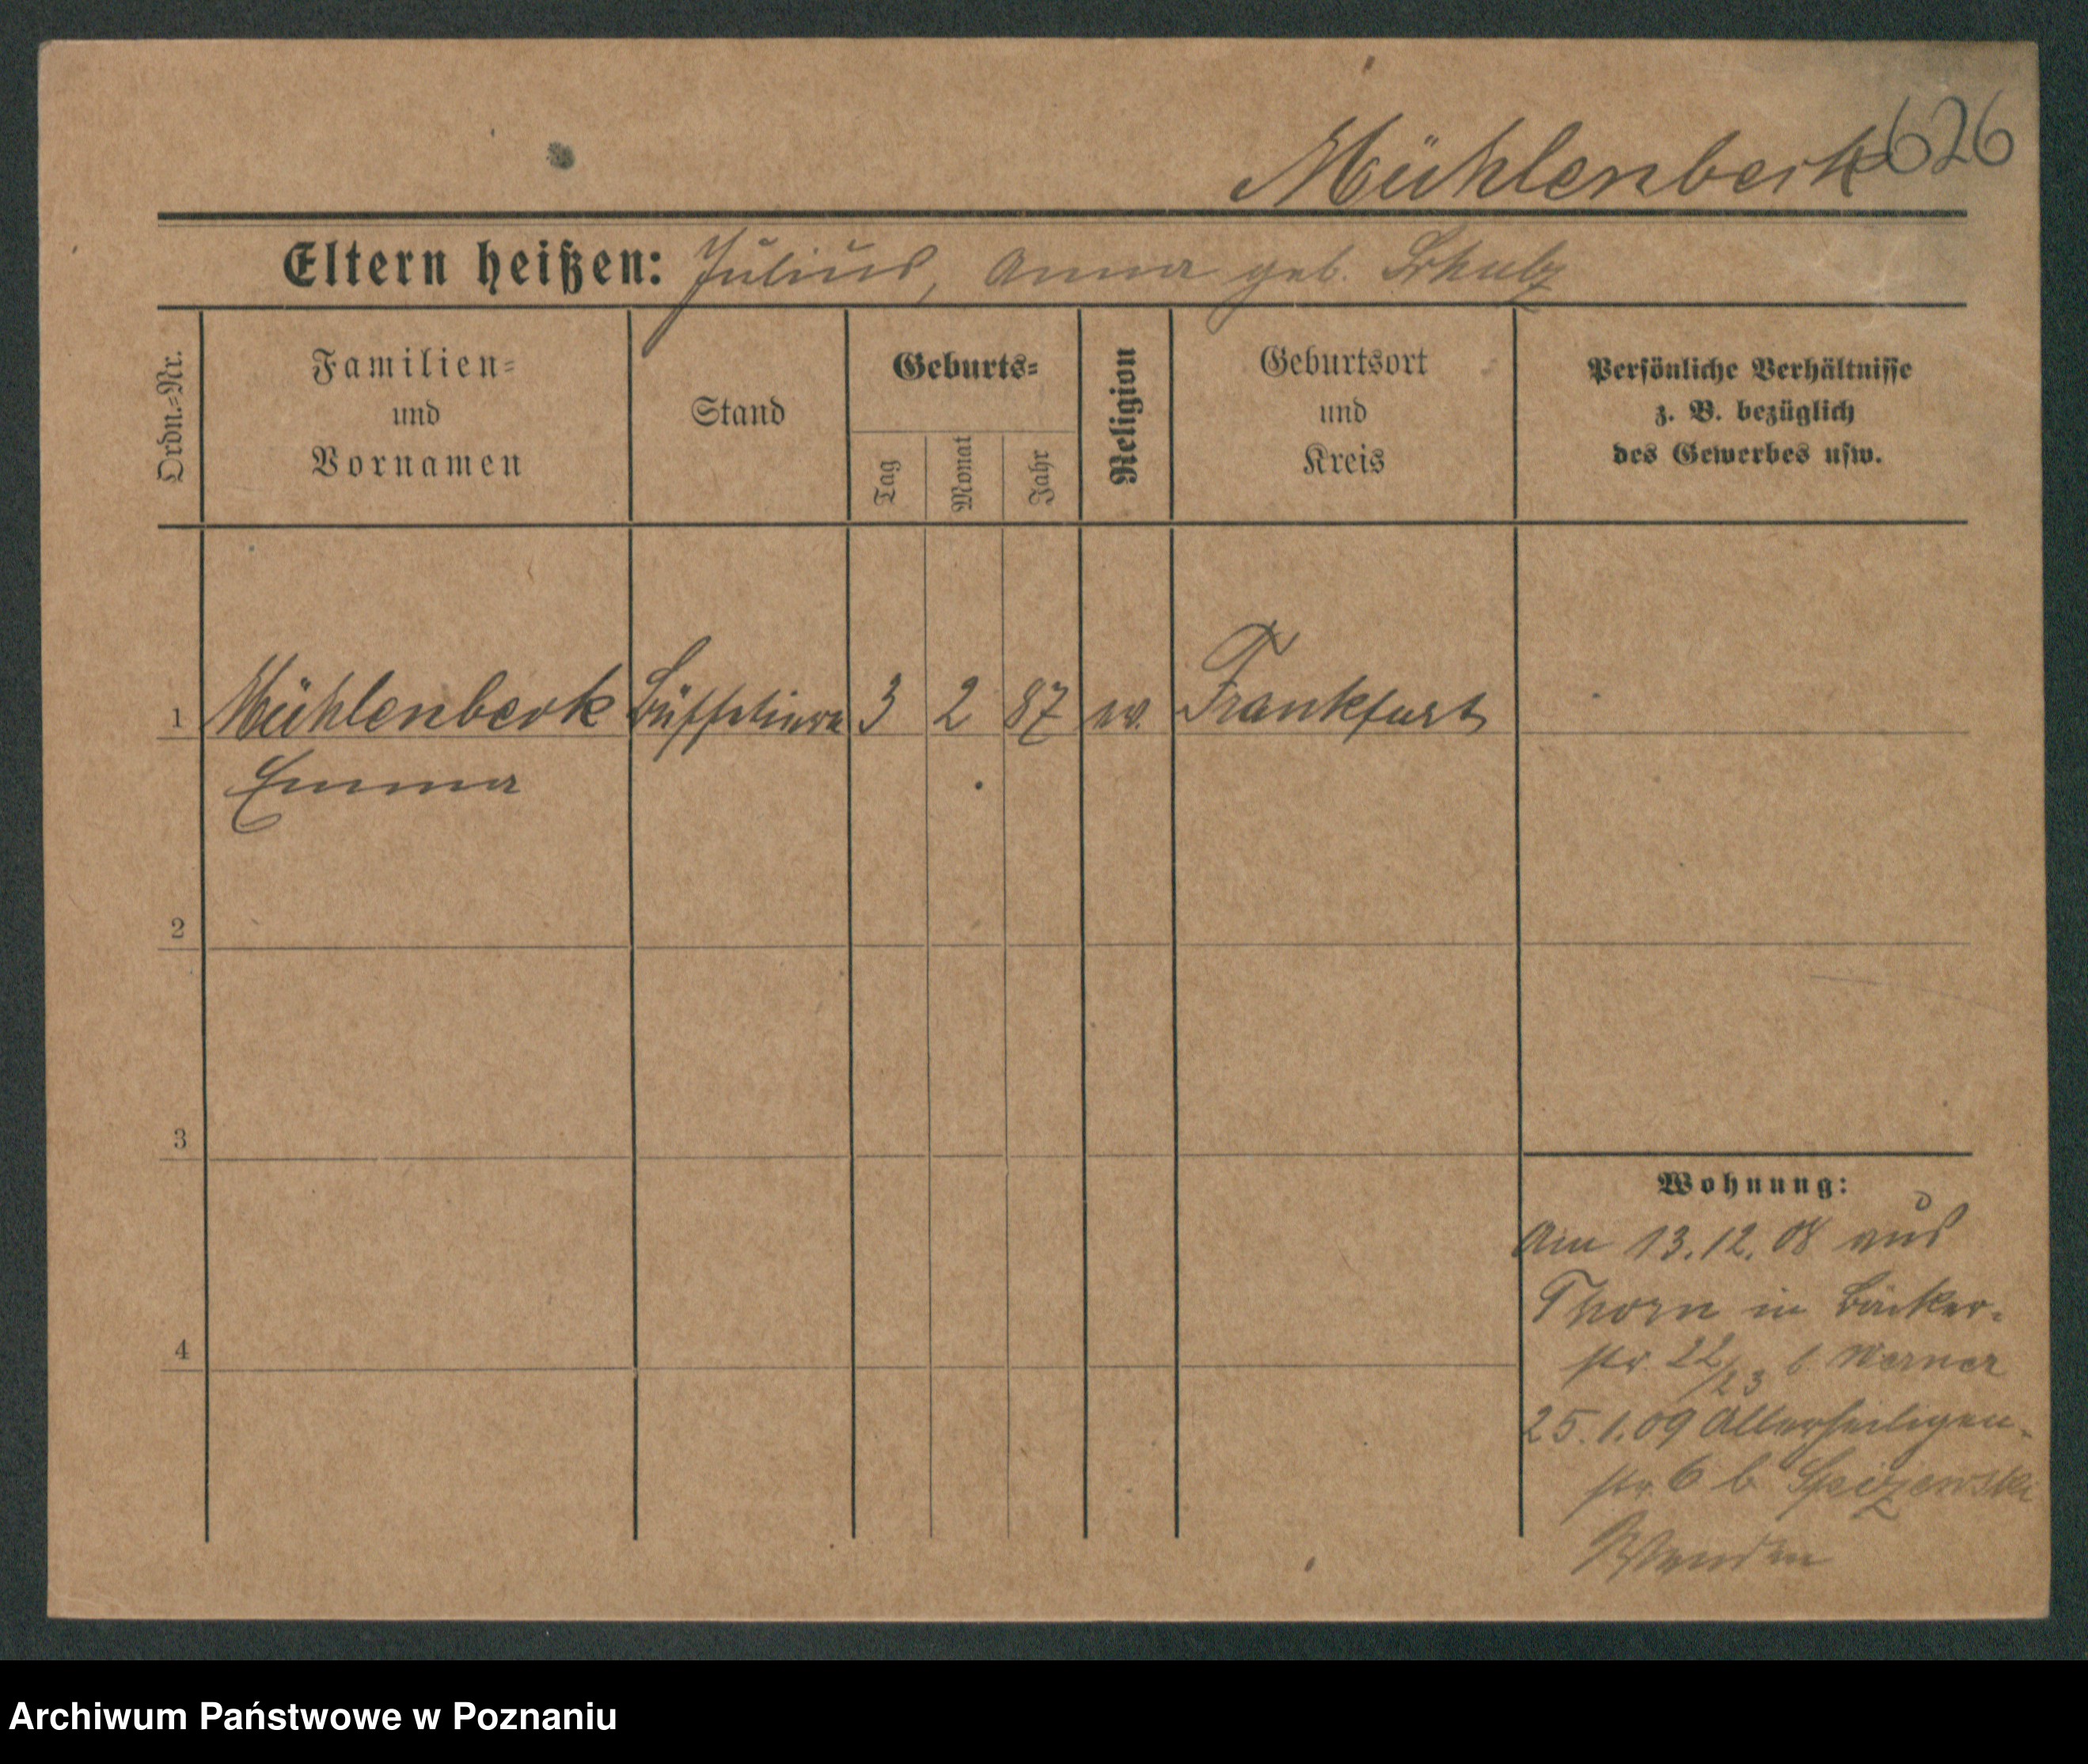 Mühlenbeck 626
Eltern heißen: Julius, Anna geb. Schulz
Ordn.=Nr.
Familien=
und
Vornamen
Stand
Geburts=
Tag
Monat
Jahr
Religion
Geburtsort
und
Kreis
Persönliche Verhältnisse
z. B. bezüglich
des Gewerbes usw.
1 Mühlenbeck 3 2 87 ev. Frankfurt
Emma
2
3
4
Wohnung:
Am 13.12.08 aus
Thorn in Bäcker-
str. 22/23 b Werner
25.1.09 Allerheiligen-
str. 6 b
Wenden
Archiwum Państwowe w Poznaniu